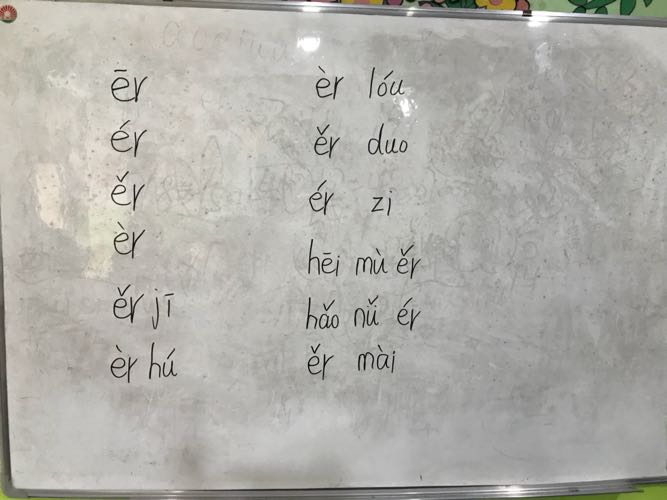 ēr
ér
ěr
èr
ěr jī
èr hú
èr lóu
ěr duo
ér zi
hēi mù ěr
hǎo nǚ ér
ěr mài